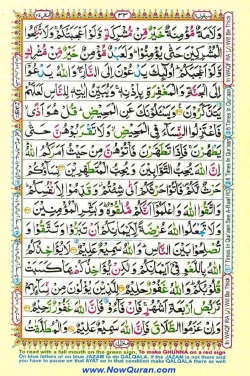 ٣٣
وَلَاَمَةٌ مُّؤْمِنَةٌ خَيْرٌ مِّنْ مُّشْرِكَةٍ وَّلَوْ اَعْجَبَتْكُمْ وَلَا تُنْكِحُوا
الْمُشْرِكِيْنَ حَتّٰى يُؤْمِنُوْا وَلَعَبْدٌ مُّؤْمِنٌ خَيْرٌ مِّنْ مُّشْرِكٍ
وَّلَوْ اَعْجَبَكُمْ اُولٰٓئِكَ يَدْعُوْنَ اِلَى النَّارِ وَاللّٰهُ يَدْعُوْٓا اِلَى
الْجَنَّةِ وَالْمَغْفِرَةِ بِاِذْنِهٖ وَيُبَيِّنُ اٰيٰتِهٖ لِلنَّاسِ لَعَلَّهُمْ
يَتَذَكَّرُوْنَ وَيَسْـَٔلُوْنَكَ عَنِ الْمَحِيْضِ قُلْ هُوَ اَذًى
فَاعْتَزِلُوا النِّسَآءَ فِى الْمَحِيْضِ وَلَا تَقْرَبُوْهُنَّ حَتّٰى
يَطْهُرْنَ فَاِذَا تَطَهَّرْنَ فَاْتُوْهُنَّ مِنْ حَيْثُ اَمَرَكُمُ
اللّٰهُ اِنَّ اللّٰهَ يُحِبُّ التَّوَّابِيْنَ وَيُحِبُّ الْمُتَطَهِّرِيْنَ نِسَآؤُكُمْ
حَرْثٌ لَّكُمْ فَاْتُوْا حَرْثَكُمْ اَنّٰى شِئْتُمْ وَقَدِّمُوْا لِاَنْفُسِكُمْ
وَاتَّقُوا اللّٰهَ وَاعْلَمُوْٓا اَنَّكُمْ مُّلٰقُوْهُ وَبَشِّرِ الْمُؤْمِنِيْنَ
وَلَا تَجْعَلُوا اللّٰهَ عُرْضَةً لِّاَيْمَانِكُمْ اَنْ تَبَرُّوْا وَتَتَّقُوْا
وَتُصْلِحُوْا بَيْنَ النَّاسِ وَاللّٰهُ سَمِيْعٌ عَلِيْمٌ لَا يُؤَاخِذُكُمُ
اللّٰهُ بِاللَّغْوِ فِىْٓ اَيْمَانِكُمْ وَلٰكِنْ يُّؤَاخِذُكُمْ بِمَا كَسَبَتْ
قُلُوْبُكُمْ وَاللّٰهُ غَفُوْرٌ حَلِيْمٌ لِلَّذِيْنَ يُؤْلُوْنَ مِنْ نِّسَآئِهِمْ
تَرَبُّصُ اَرْبَعَةِ اَشْهُرٍ فَاِنْ فَآءُوْ فَاِنَّ اللّٰهَ غَفُوْرٌ رَّحِيْمٌ
وَاِنْ عَزَمُوا الطَّلَاقَ فَاِنَّ اللّٰهَ سَمِيْعٌ عَلِيْمٌ
To read with a full mouth on the green sign, To make GHUNNA on a red sign
On blue letters or on blue JAZAM to do QALQALA, if the JAZAM is not there and
you have to pause on that AYAT so in that condition make QALQALA there as well
www.NowQuran.com